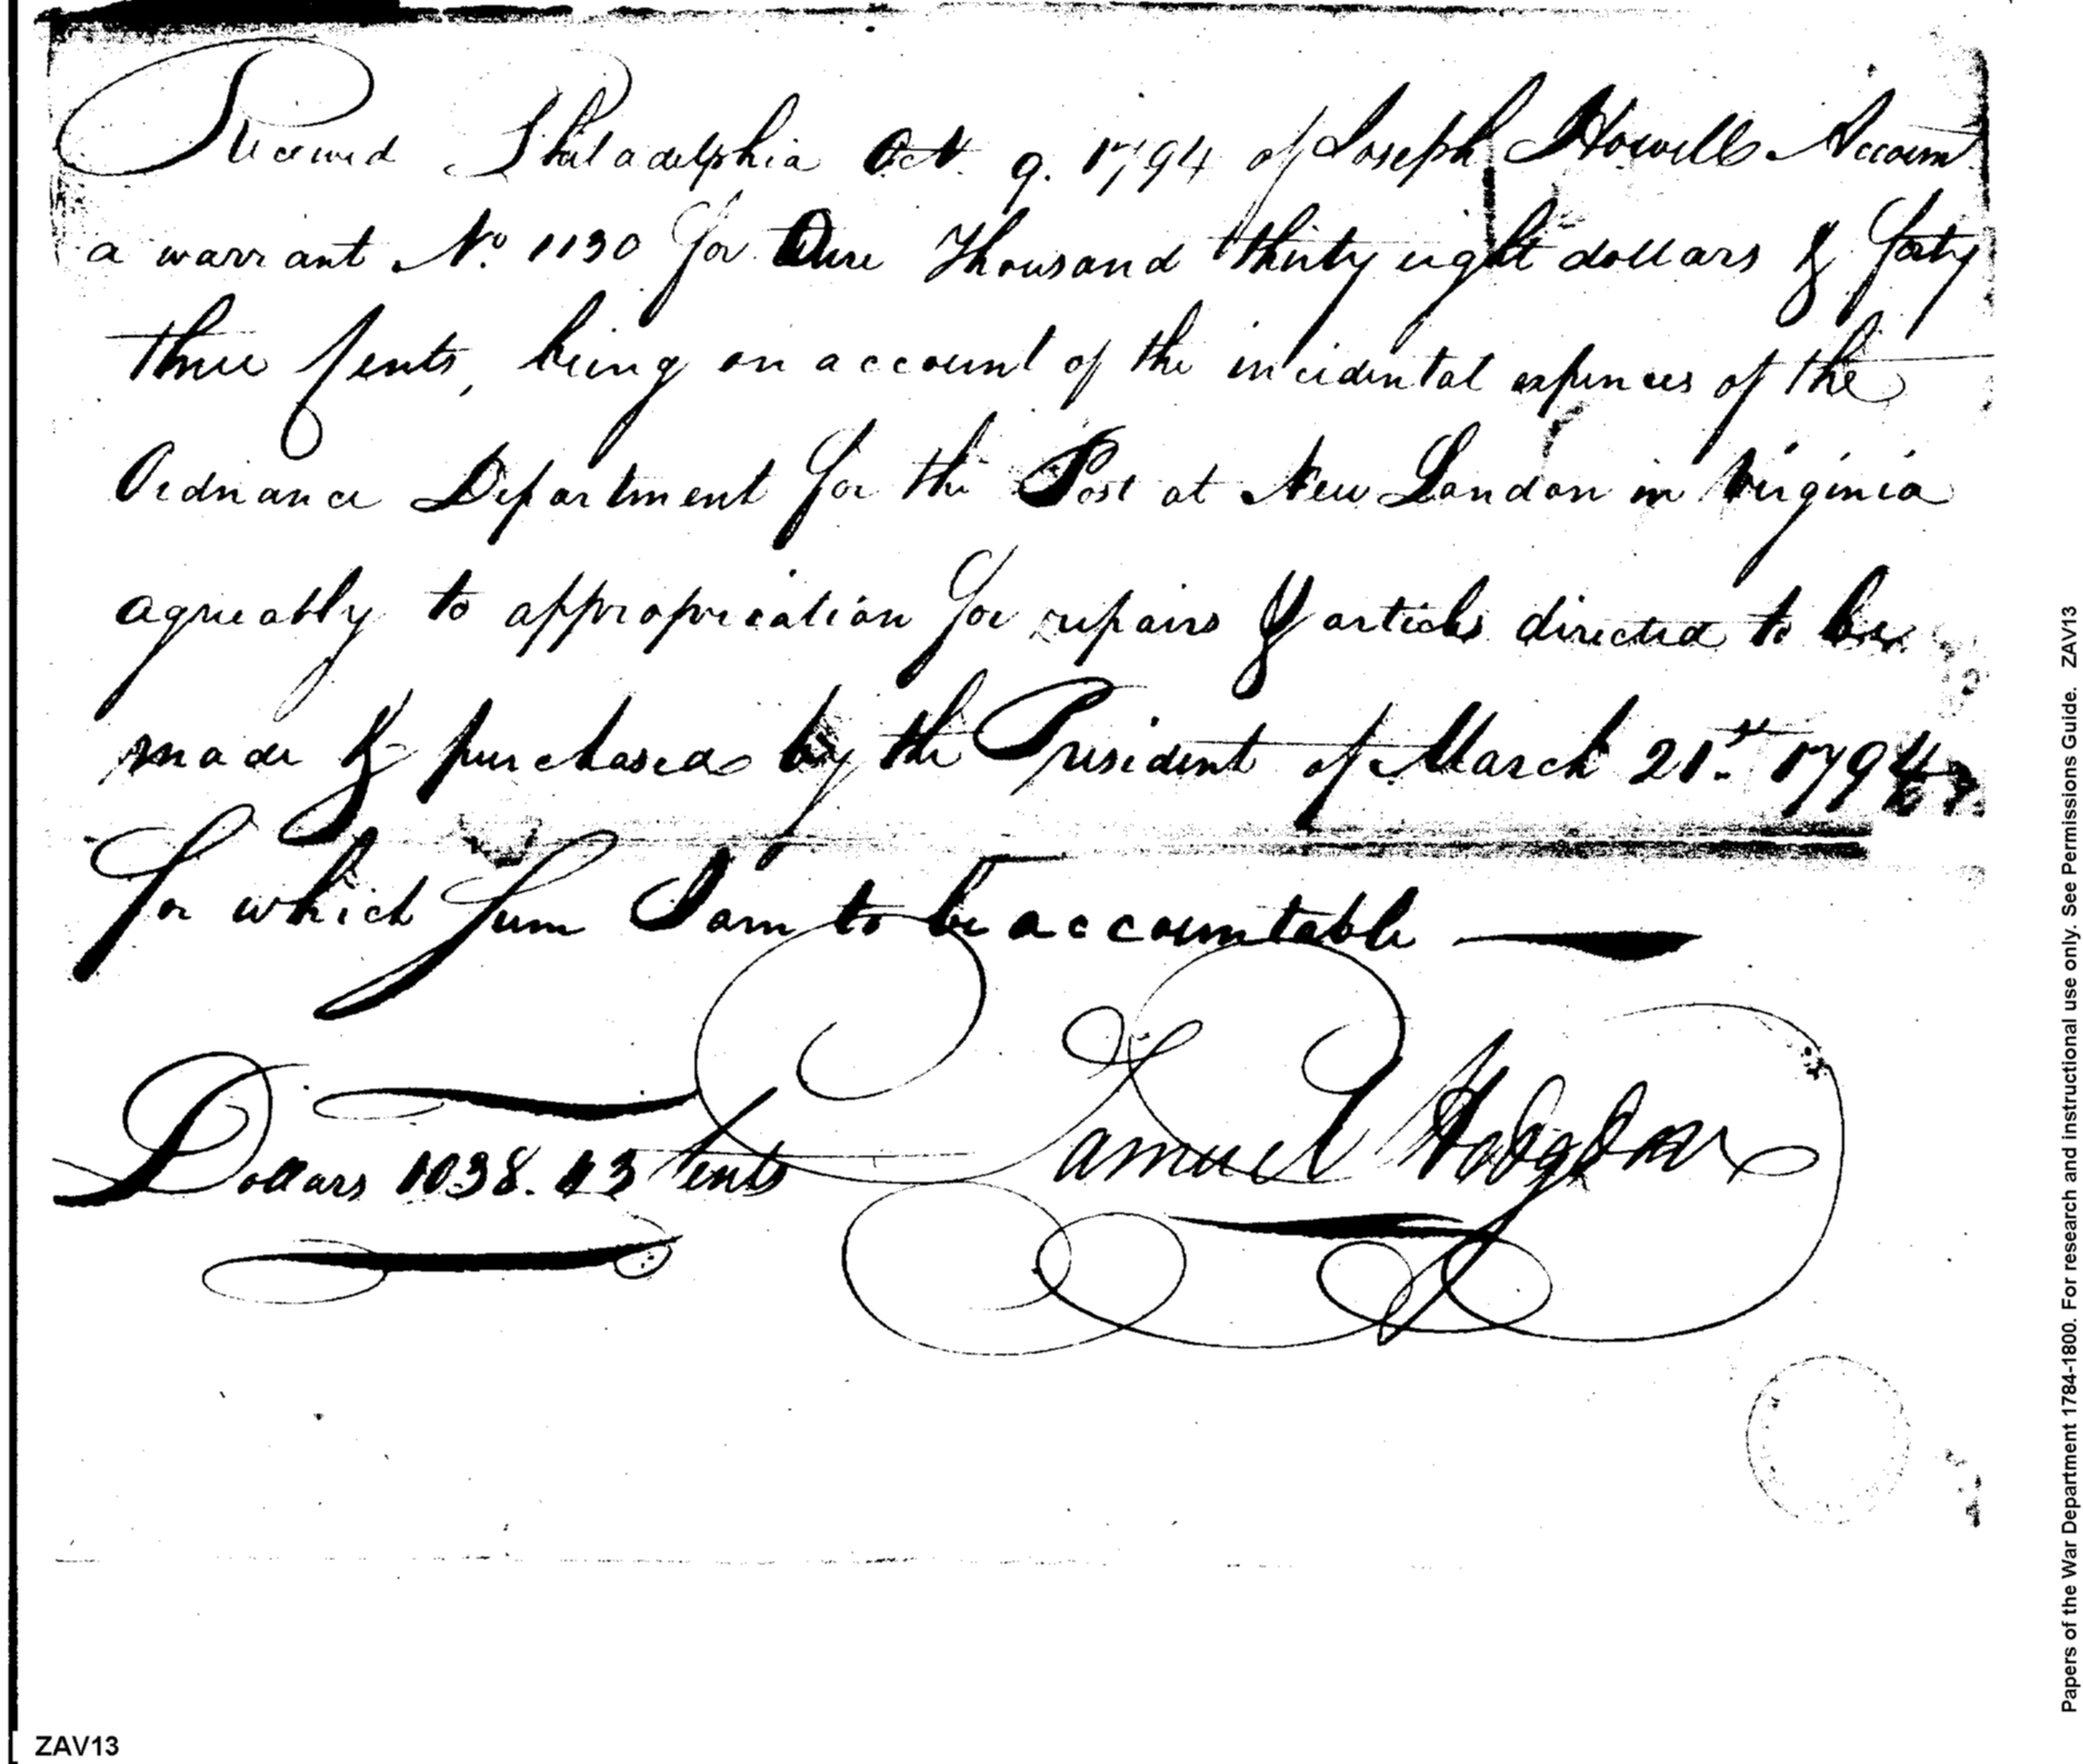 Received Philadelphia Oct. 9. 1794 of Joseph Howell Accomt
a warrant No. 1130 for One Thousand thirty eight dollars & forty
three Cents, being on account of the incidental expences of the
Ordnance Department for the Post at New London in Virginia
agreeably to appropriation for repairs & articles directed to be
made & purchased by the President of March 21st. 1794
for which sum I am to be accountable
Dollars 1038. 43 Cents
Samuel Hodgdon
ZAV13
Papers of the War Department 1784-1800. For research and instructional use only. See Permissions Guide. ZAV13